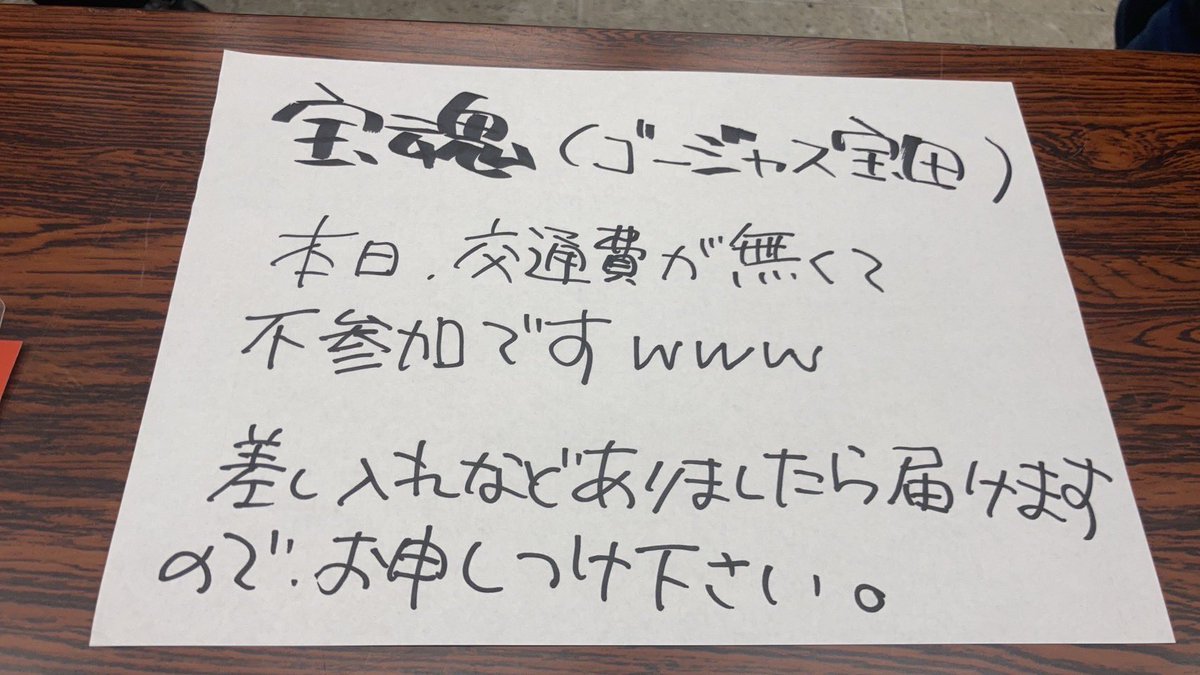 宝魂（ゴージャス宝田）
本日、交通費が無くて
不参加ですwww
差し入れなどありましたら届けます
ので、お申しつけ下さい。